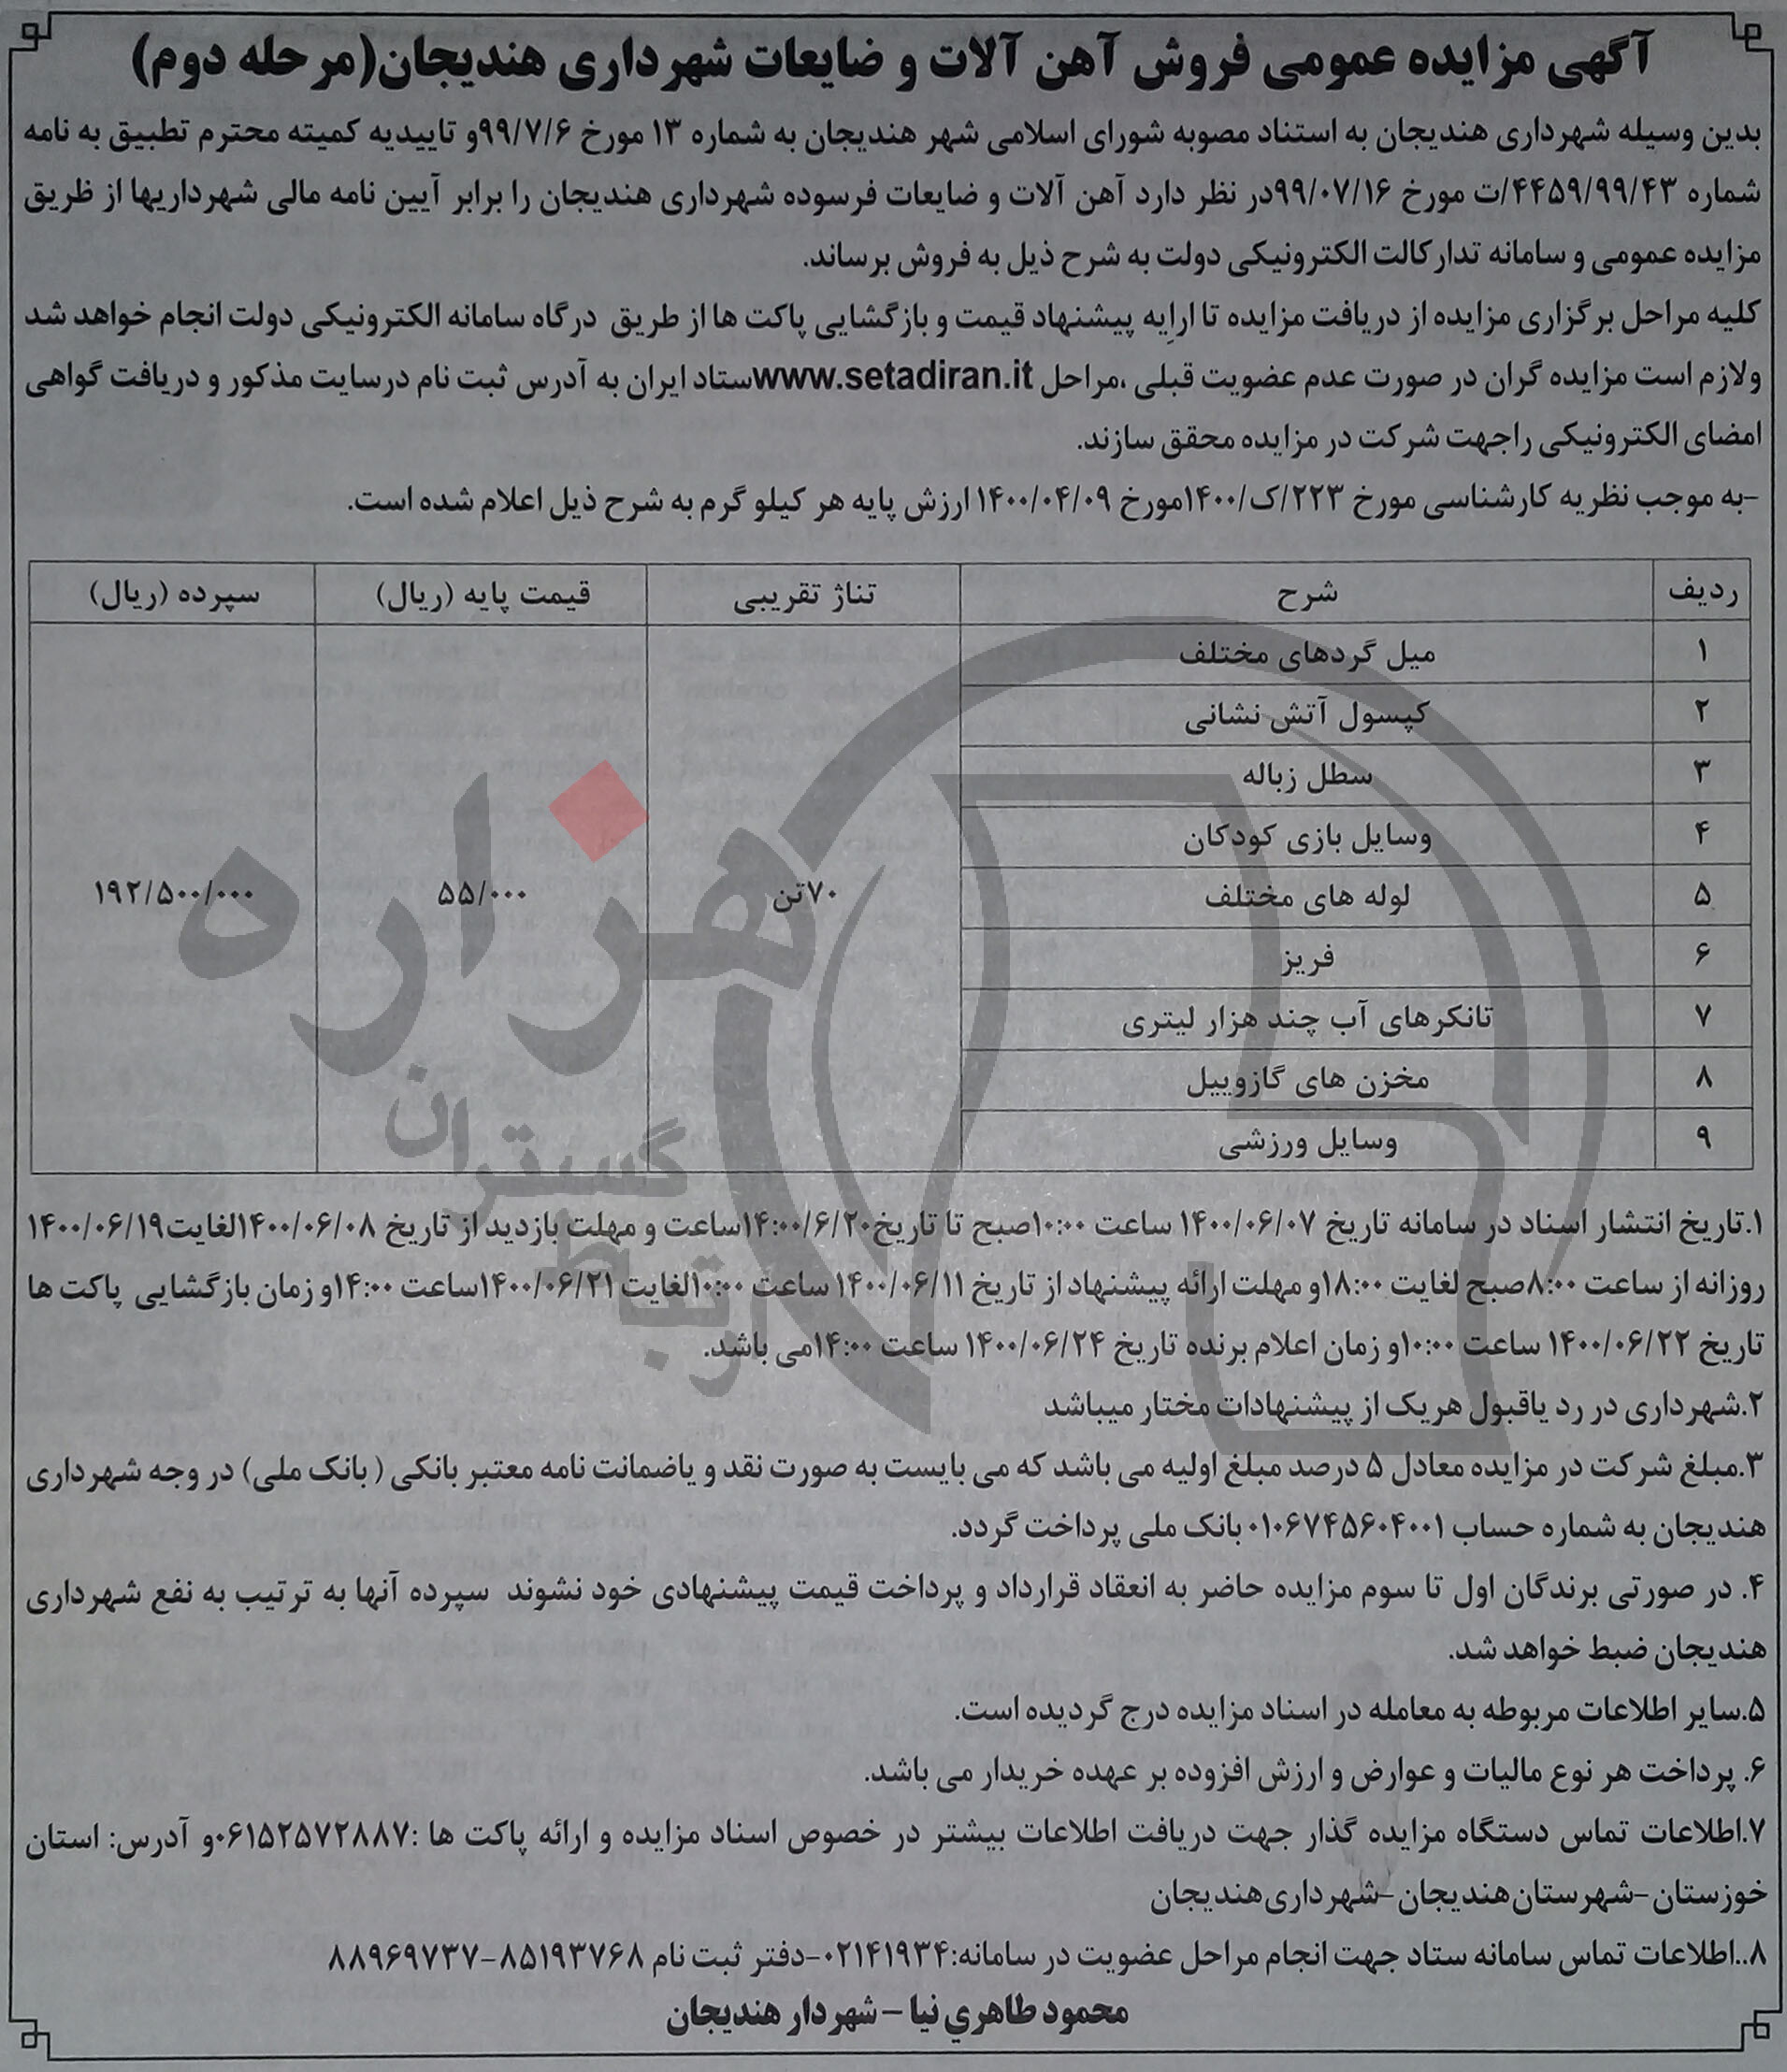 آگهی مزایده عمومی فروش آهن آلات و ضایعات شهرداری هندیجان(مرحله دوم)
بدین وسیله شهرداری هندیجان به استناد مصوبه شورای اسلامی شهر هندیجان به شماره ۱۳ مورخ ۹۹/۷/۶و تاییدیه کمیته محترم تطبیق به نامه
شماره ۴۴۵۹/۹۹/۴۳/ت مورخ ۹۹/۰۷/۱۶در نظر دارد آهن آلات و ضایعات فرسوده شهرداری هندیجان را برابر آیین نامه مالی شهرداریها از ظریق
مزایده عمومی و سامانه تدارکالت الکترونیکی دولت به شرح ذیل به فروش برساند.
کلیه مراحل برگزاری مزایده از دریافت مزایده تا ارایه پیشنهاد قیمت و بازگشایی پاکت ها از طریق درگاه سامانه الکترونیکی دولت انجام خواهد شد
ولازم است مزایده گران در صورت عدم عضویت قبلی ،مراحل www.setadiran.itستاد ایران به آدرس ثبت نام درسایت مذکور و دریافت گواهی
امضای الکترونیکی راجهت شرکت در مزایده محقق سازند.
-به موجب نظریه کارشناسی مورخ ۲۲۳/ک/۱۴۰۰مورخ ۱۴۰۰/۰۴/۰۹ ارزش پایه هر کیلو گرم به شرح ذیل اعلام شده است.
ردیف شرح تناژ تقریبی قیمت پایه (ریال) سپرده (ریال)
۱ میل گردهای مختلف
۲ کپسول آتش نشانی
۳ سطل زباله
۴ وسایل بازی کودکان
۵ لوله های مختلف ۷۰تن ۵۵/۰۰۰ ۱۹۲/۵۰۰/۰۰۰
۶ فریز
۷ تانکرهای آب چند هزار لیتری
۸ مخزن های گازوییل
۹ وسایل ورزشی
هزاره
گستران
ارتباط
۱.تاریخ انتشار اسناد در سامانه تاریخ ۱۴۰۰/۰۶/۰۷ ساعت ۱۰:۰۰صبح تا تاریخ۱۴:۰۰/۶/۲۰ساعت و مهلت بازدید از تاریخ ۱۴۰۰/۰۶/۰۸لغایت۱۴۰۰/۰۶/۱۹
روزانه از ساعت ۸:۰۰صبح لغایت ۱۸:۰۰و مهلت ارائه پیشنهاد از تاریخ ۱۴۰۰/۰۶/۱۱ ساعت ۱۰:۰۰لغایت ۱۴۰۰/۰۶/۲۱ساعت ۱۴:۰۰و زمان بازگشایی پاکت ها
تاریخ ۱۴۰۰/۰۶/۲۲ ساعت ۱۰:۰۰و زمان اعلام برنده تاریخ ۱۴۰۰/۰۶/۲۴ ساعت ۱۴:۰۰می باشد.
۲.شهرداری در رد یاقبول هریک از پیشنهادات مختار میباشد
۳.مبلغ شرکت در مزایده معادل ۵ درصد مبلغ اولیه می باشد که می بایست به صورت نقد و یاضمانت نامه معتبر بانکی ( بانک ملی) در وجه شهرداری
هندیجان به شماره حساب ۰۱۰۶۷۴۵۶۰۴۰۰۱ بانک ملی پرداخت گردد.
۴. در صورتی برندگان اول تا سوم مزایده حاضر به انعقاد قرارداد و پرداخت قیمت پیشنهادی خود نشوند سپرده آنها به ترتیب به نفع شهرداری
هندیجان ضبط خواهد شد.
۵.سایر اطلاعات مربوطه به معامله در اسناد مزایده درج گردیده است.
۶. پرداخت هر نوع مالیات و عوارض و ارزش افزوده بر عهده خریدار می باشد.
۷.اطلاعات تماس دستگاه مزایده گذار جهت دریافت اطلاعات بیشتر در خصوص اسناد مزایده و ارائه پاکت ها :۰۶۱۵۲۵۷۲۸۸۷و آدرس: استان
خوزستان -شهرستان هندیجان -شهرداری هندیجان
۸..اطلاعات تماس سامانه ستاد جهت انجام مراحل عضویت در سامانه:۰۲۱۴۱۹۳۴-دفتر ثبت نام ۸۵۱۹۳۷۶۸-۸۸۹۶۹۷۳۷
محمود طاهري نیا - شهردار هندیجان